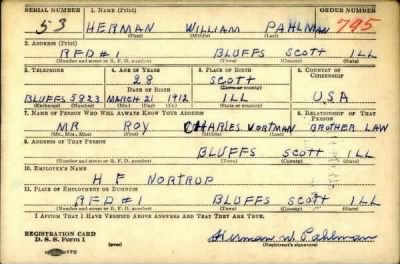 SERIAL NUMBER 1. NAME (Print) ORDER NUMBER
53 HERMAN WILLIAM PAHLMAN 795
(First) (Middle) (Last)
2. ADDRESS (Print)
RFD #1 BLUFFS SCOTT ILL
(Number and street or R. F. D. number) (Town) (County) (State)
3. TELEPHONE 4. AGE IN YEARS 5. PLACE OF BIRTH 6. COUNTRY OF CITIZENSHIP
28 SCOTT
DATE OF BIRTH (Town or county)
BLUFFS 5823 MARCH 21 1912 ILL USA
(Exchange) (Number) (Mo.) (Day) (Yr.) (State or country)
7. NAME OF PERSON WHO WILL ALWAYS KNOW YOUR ADDRESS 8. RELATIONSHIP OF THAT PERSON
MR ROY CHARLES VORTMAN BROTHER LAW
(Mr., Mrs., Miss) (First) (Middle) (Last)
9. ADDRESS OF THAT PERSON
BLUFFS SCOTT ILL
(Number and street or R. F. D. number) (Town) (County) (State)
10. EMPLOYER'S NAME
H F NORTRUP
11. PLACE OF EMPLOYMENT OR BUSINESS
RFD #1 BLUFFS SCOTT ILL
(Number and street or R. F. D. number) (Town) (County) (State)
I AFFIRM THAT I HAVE VERIFIED ABOVE ANSWERS AND THAT THEY ARE TRUE.
REGISTRATION CARD
D. S. S. Form 1 (over) Herman W Pahlman
(Registrant's signature)